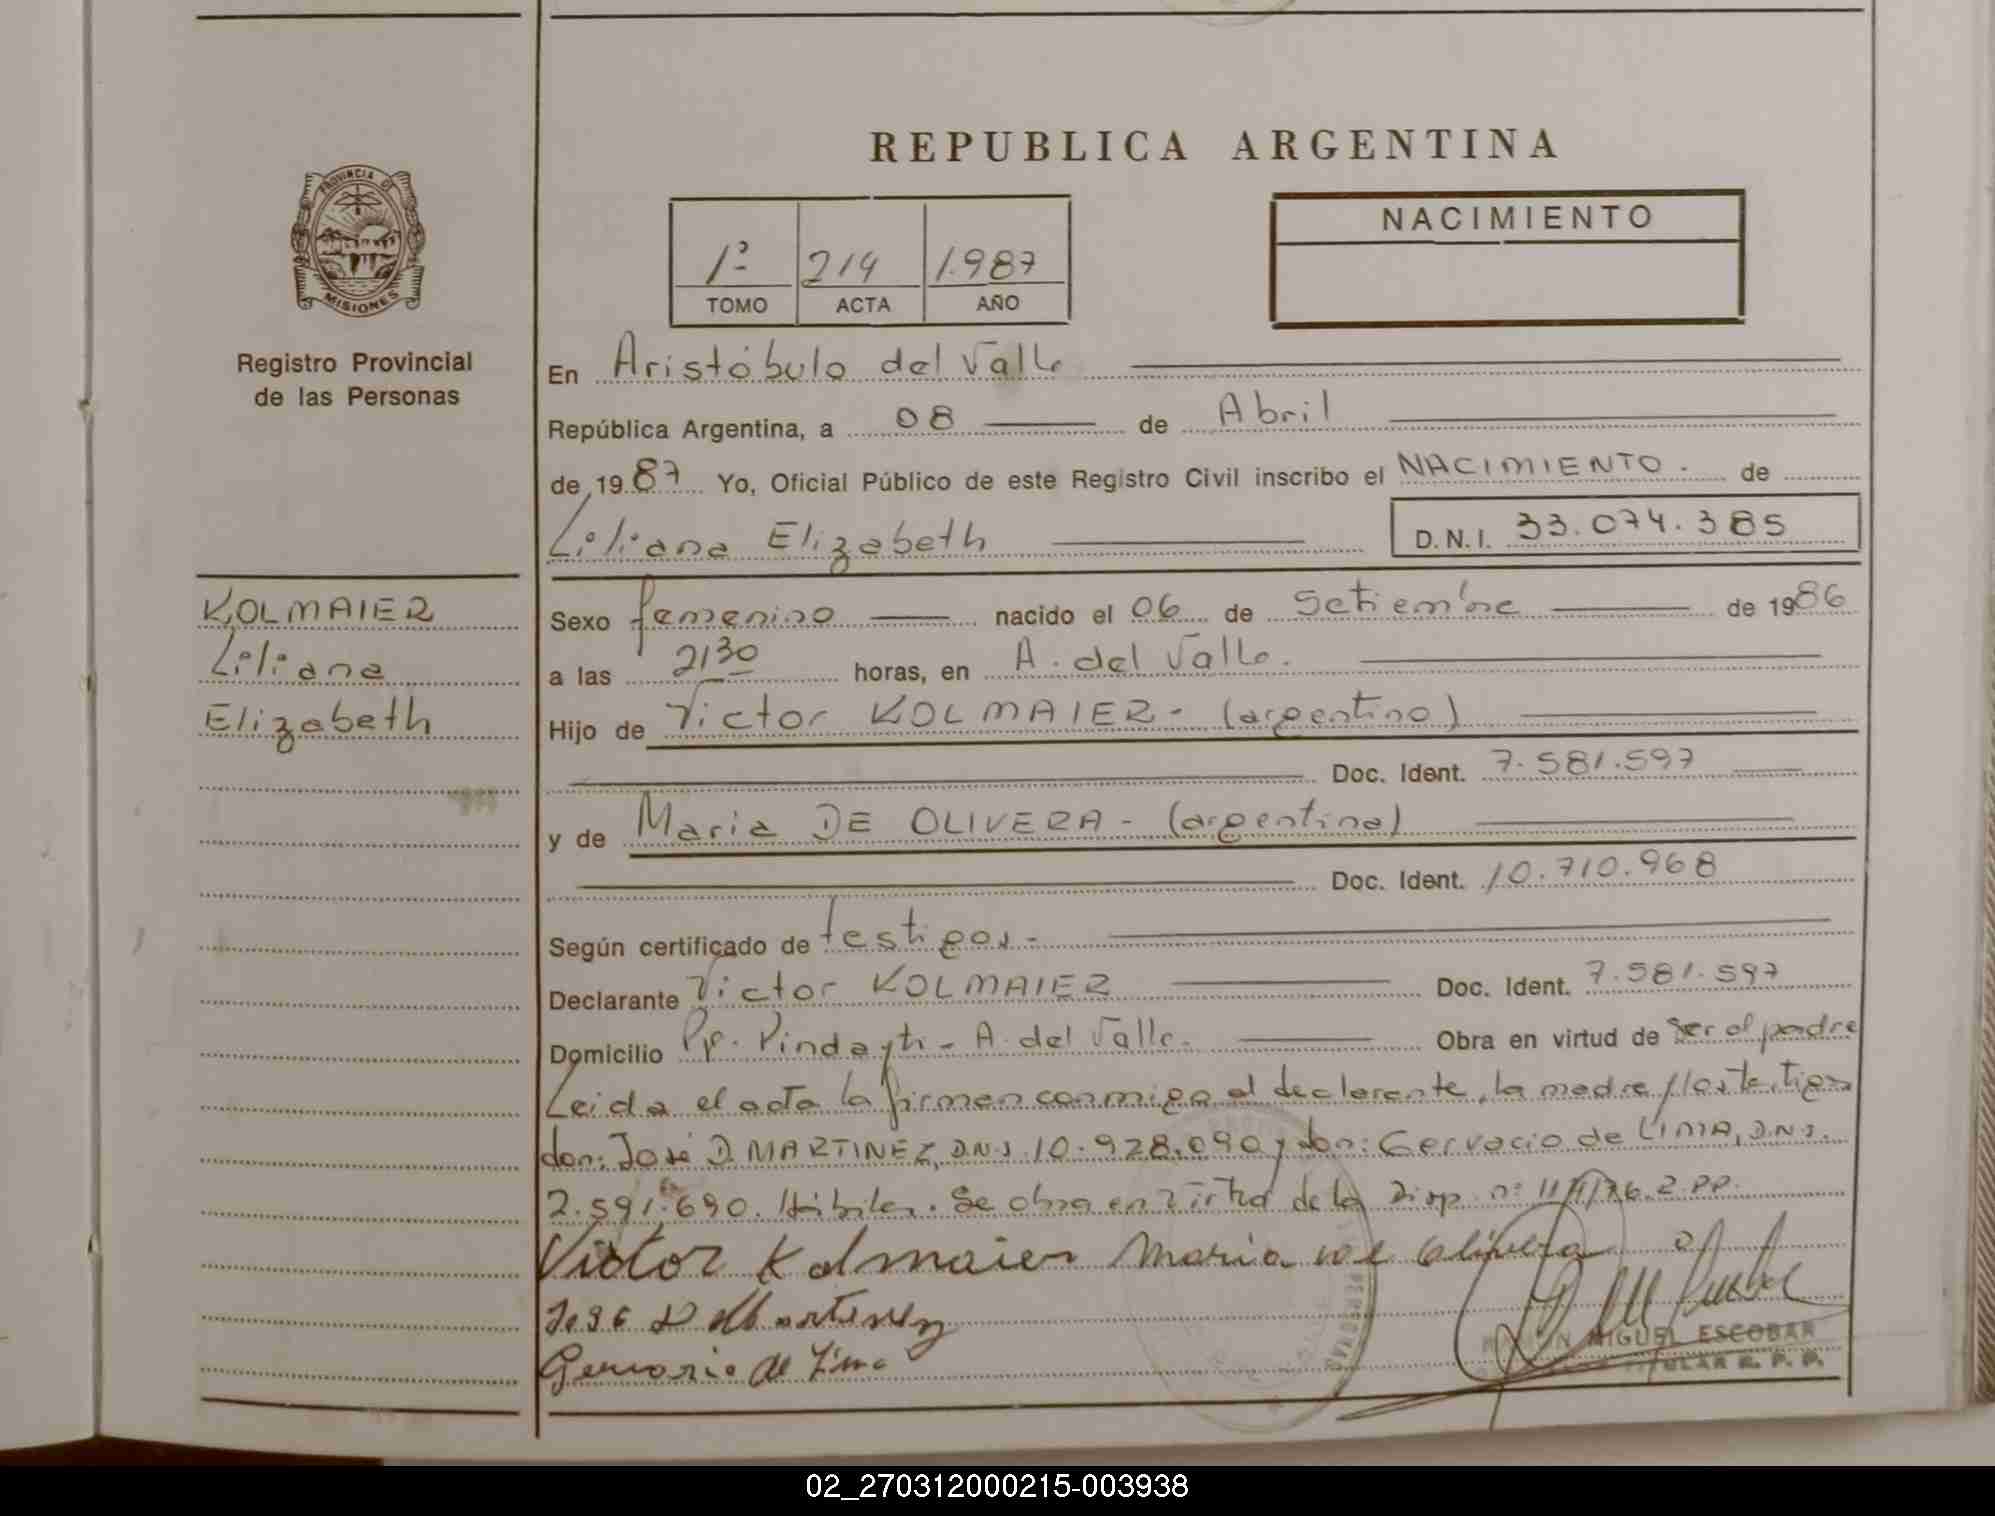 REPUBLICA ARGENTINA
PROVINCIA DE
MISIONES
Registro Provincial
de las Personas
1º 214 1.987
TOMO ACTA AÑO
NACIMIENTO
En Aristóbulo del Valle
República Argentina, a 08 de Abril
de 1987 Yo, Oficial Público de este Registro Civil inscribo el NACIMIENTO. de
Liliana Elizabeth D.N.I. 33.074.385
KOLMAIER
Liliana
Elizabeth
Sexo femenino nacido el 06 de Setiembre de 1986
a las 2130 horas, en A. del Valle.
Hijo de Victor KOLMAIER- (argentino)
Doc. Ident. 7.581.597
y de Maria DE OLIVERA- (argentina)
Doc. Ident. 10.710.968
Según certificado de testigos.-
Declarante Victor KOLMAIER Doc. Ident. 7.581.597
Domicilio Pindayti- A. del Valle. Obra en virtud de Ser el padre
Leida el acta la firman conmigo el declarante, la madre y los testigos
don: José D. MARTINEZ, D.N.I. 10.928.090 y don: Gervacio de LIMA, D.N.I.
2.591.690. Hábiles. Se obra en virtud de la Disp. nº
Victor Kolmaier Maria de Olivera
José D Martinez
Gervasio de Lima
MIGUEL ESCOBAR
TITULAR R. P. P.
02_270312000215-003938